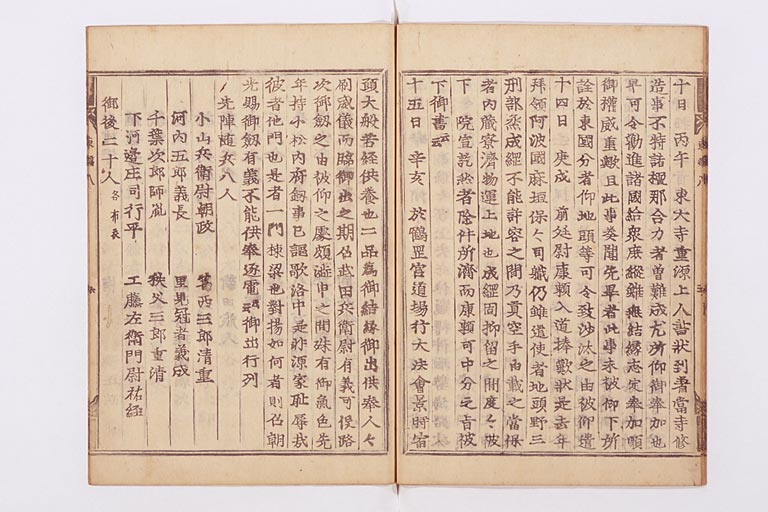 十日 丙午 東大寺重源上人書状到着當寺修
造事不特諸檀那合力者曽難成尤所仰御奉加也
早可令勧進諸國給衆庶縦雖無結縁志定奉加順
御權威重歟且此事奏聞先畢者此事未被仰下所
詮於東國分者仰地頭等可令致沙汰之由被仰遣
十四日 庚戌 前廷尉康頼入道捧歎状是去年
拝領阿波國麻殖保々司職仍雖遣使者地頭野三
刑部烝成綱不能許容之間乃貢空手面載之當保
者内蔵寮済物運上地也成綱固抑留之間度々被
下 院宣訖然者除件所済而康頼可中分之旨被
下御書云云
十五日 辛亥 於鶴罡宮道場行大法會景時宿
頭大般若經供養也二品為御結縁御出供奉人々
刷威儀而臨御出之期召武田兵衛尉有義可役路
次御劔之由被仰之處頗澁申之間殊有御氣色先
年持小松内府劔事已謳歌洛中是非源家耻辱哉
彼者他門也是者一門棟梁也對揚如何者則召朝
光賜御劔有義不能供奉逐電云云御出行列
先陣随兵八人
小山兵衛尉朝政 葛西三郎清重
河内五郎義長 里見冠者義成
千葉次郎師胤 秩父三郎重清
下河邊庄司行平 工藤左衛門尉祐経
御後二十人 各布衣